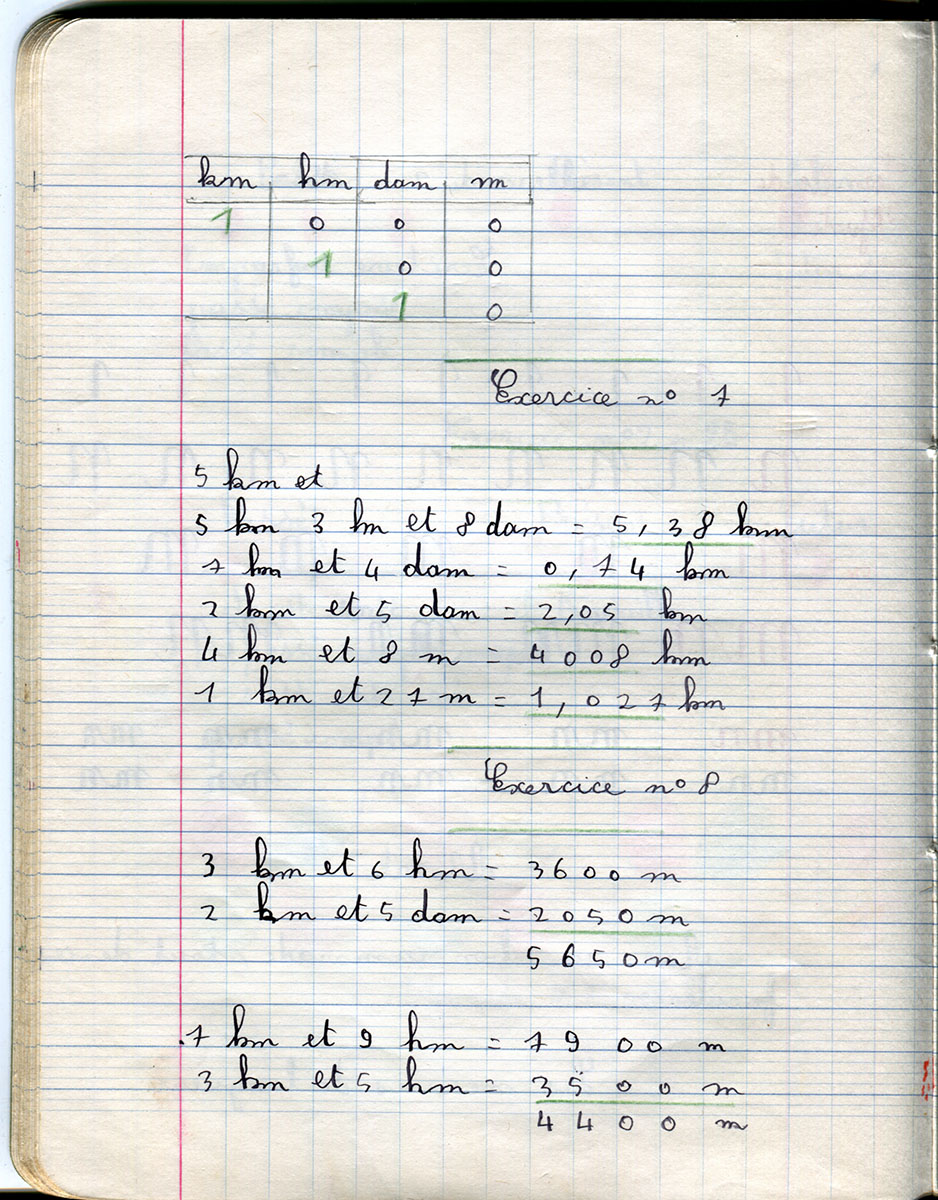 km hm dam m
1 0 0 0
1 0 0
1 0
Exercice n° 7
5 km et
5 km 3 hm et 8 dam = 5,38 km
7 hm et 4 dam = 0,74 km
2 km et 5 dam = 2,05 km
4 km et 8 m = 4008 km
1 km et 27 m = 1,027 km
Exercice n° 8
3 km et 6 hm = 3600 m
2 km et 5 dam = 2050 m
5650 m
7 km et 9 hm = 7900 m
3 km et 5 hm = 3500 m
4400 m